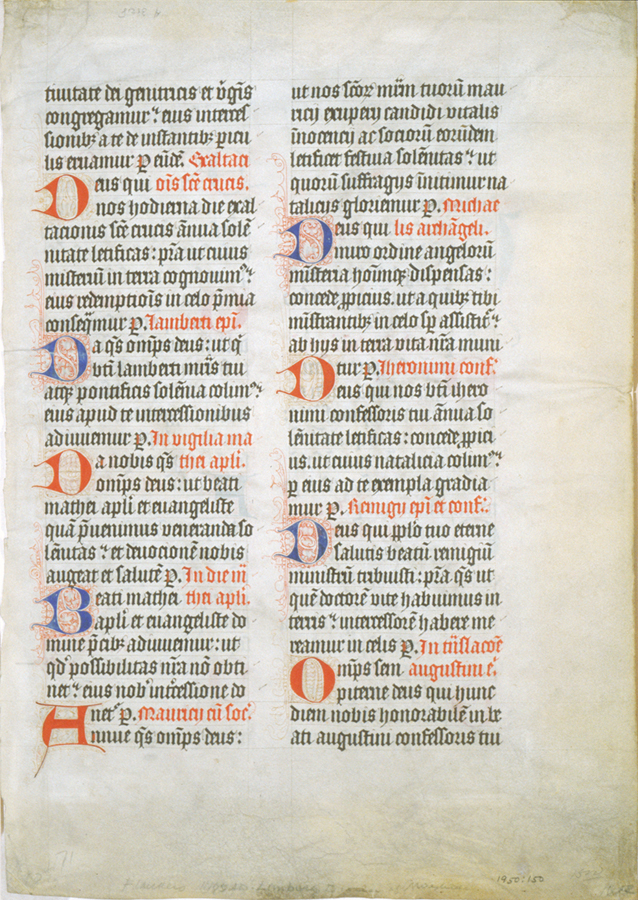 tiuitate dei genitricis et v̄gīs
congregamur ⁊ eius interces
sionibꝫ a te de instantibꝫ picu
lis eruamur P. eūdē. Exaltaci
Deus qui oīs scē crucis.
nos hodierna die exal
tacionis scē crucis ānua solē
nitate letificas: pr̄a ut cuius
misteriū in terra cognouimꝰ ⁊
eius redemptiōis in celo p̄mia
conseq̄mur P. lamberti ep̄i.
Da q̄s om̄ps deus: ut q̄
bt̄i lamberti mr̄is tui
atqꝫ pontificis solēnia colimꝰ:
eius apud te intercessionibus
adiuuemur P. In vigilia ma
Da nobis q̄s thei apl̄i.
om̄ps deus: ut beati
mathei apl̄i et euangeliste
quā p̄uenimus veneranda so
lēnitas ⁊ et deuocionē nobis
augeat et salutē P. In die m̄
Beati mathei thei apl̄i.
apl̄i et euangeliste do
mine p̄cibꝫ adiuuemur: ut
qd̓ possibilitas nr̄a nō obti
net ⁊ eius nob̓ int̓cessione do
Anet᷑ P. Mauricij cū soc̓.
Annue q̄s om̄ps deus:
ut nos scōꝝ mr̄m tuorū mau
ricij exuperij candidi vitalis
īnocencij ac sociorū eorūdem
letificet festiua solēnitas ⁊ ut
quorū suffragijs īnitimur na
talicijs gloriemur P. Michae
Deus qui lis archāgeli.
miro ordine angelorū
mīsteria hoīmqꝫ dispensas:
concede ꝓpicius. ut a quibꝫ tibi
mīstrantibꝫ in celo sp̄ assistit᷑ ⁊
ab hijs in terra vita nr̄a muni
tur P. Iheronimi conf̓.
Deus qui nos bt̄i ihero
nimi confessoris tui ānua so
lēnitate letificas: concede ꝓpici
us. ut cuius natalicia colimꝰ ⁊
p eius ad te exempla gradia
mur P. Remigij ep̄i et conf̓.
Deus qui pplo tuo eterne
salutis beatū remigiū
ministrū tribuisti: pr̄a q̄s ut
quē doctorē vite habuimus in
terris ⁊ intercessorē habere me
reamur in celis P. In trāslacōē
Omp̄s sem augustini e̓.
piterne deus qui hunc
diem nobis honorabilē in be
ati augustini confessoris tui
1950:150